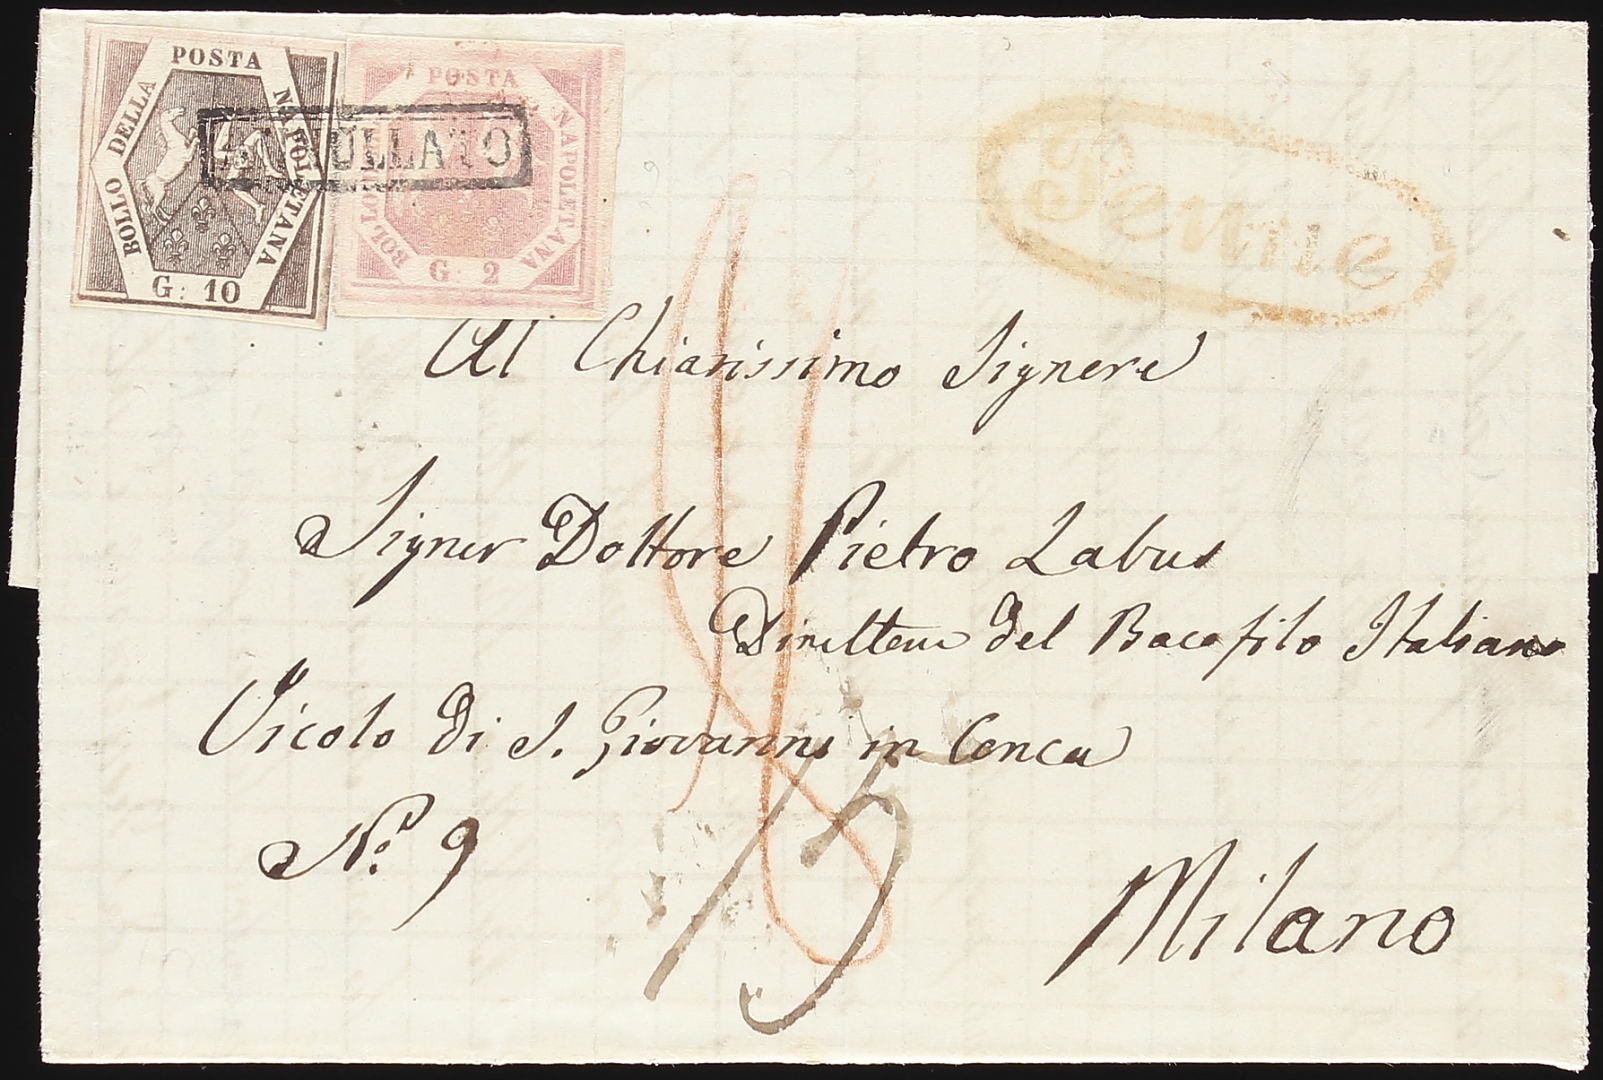 POSTA
BOLLO DELLA
NAPOLETANA
G: 10
POSTA
BOLLO
NAPOLETANA
G. 2
ANNULLATO
Penne
Al Chiarissimo Signore
Signor Dottore Pietro Labus
Direttore del Bacofilo Italiano
Vicolo di S. Giovanni in Conca
No. 9
Milano